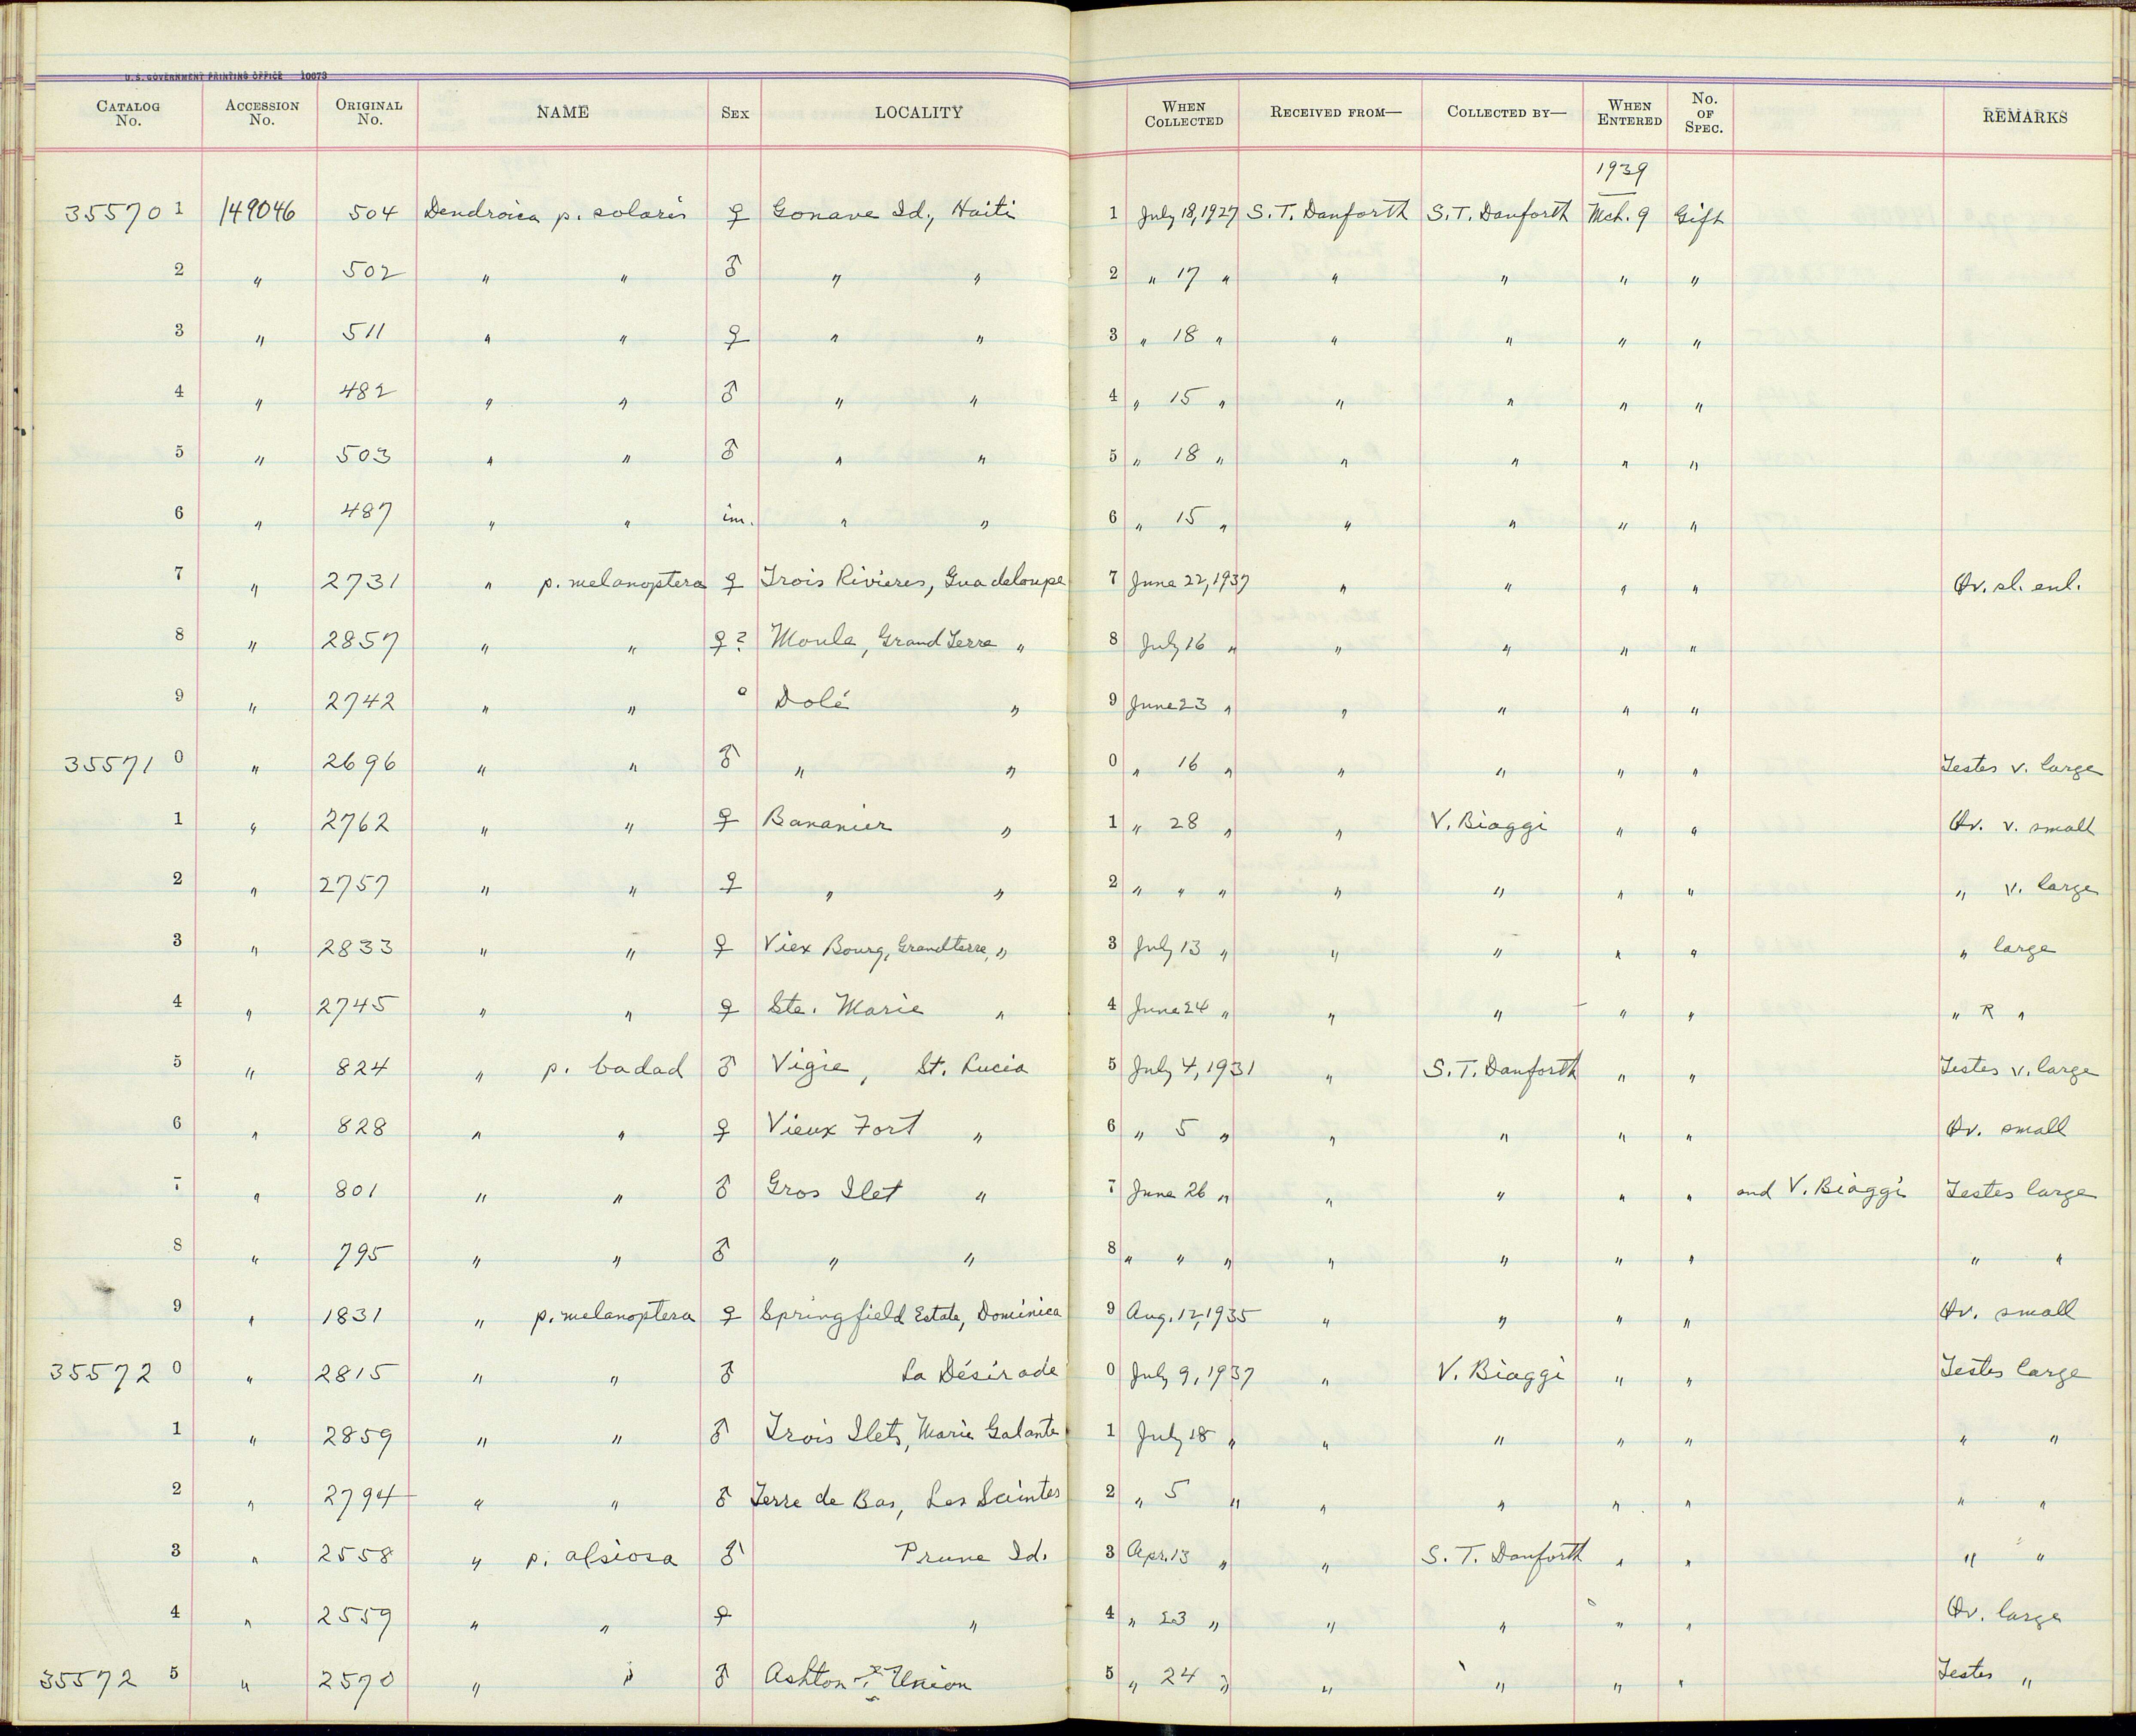 U. S. GOVERNMENT PRINTING OFFICE 10673
CATALOG No. ACCESSION No. ORIGINAL No. NAME SEX LOCALITY WHEN COLLECTED RECEIVED FROM— COLLECTED BY— WHEN ENTERED No. OF SPEC. REMARKS
1939
35570 1 149046 504 Dendroica p. solaris ♀ Gonave Id., Haiti 1 July 18, 1927 S. T. Danforth S. T. Danforth Mch. 9 Gift
2 " 502 " " ♂ " " 2 " 17 " " " " "
3 " 511 " " ♀ " " 3 " 18 " " " " "
4 " 482 " " ♂ " " 4 " 15 " " " " "
5 " 503 " " ♂ " " 5 " 18 " " " " "
6 " 487 " " im. " " 6 " 15 " " " " "
7 " 2731 " p. melanoptera ♀ Trois Rivieres, Guadeloupe 7 June 22, 1937 " " " " Ov. sl. enl.
8 " 2857 " " ♀? Moule, Grand Terre " 8 July 16 " " " " "
9 " 2742 " " o Dolé " 9 June 23 " " " " "
35571 0 " 2696 " " ♂ " " 0 " 16 " " " " " Testes v. large
1 " 2762 " " ♀ Bananier " 1 " 28 " " V. Biaggi " " Ov. v. small
2 " 2757 " " ♀ " " 2 " " " " " " " " v. large
3 " 2833 " " ♀ Viex Bourg, Grandterre, " 3 July 13 " " " " " " large
4 " 2745 " " ♀ Ste. Marie " 4 June 24 " " " " " " R "
5 " 824 " p. badad ♂ Vigie, St. Lucia 5 July 4, 1931 " S. T. Danforth " " Testes v. large
6 " 828 " " ♀ Vieux Fort " 6 " 5 " " " " " Ov. small
7 " 801 " " ♂ Gros Ilet " 7 June 26 " " " " " and V. Biaggi Testes large
8 " 795 " " ♂ " " 8 " " " " " " " " "
9 " 1831 " p. melanoptera ♀ Springfield Estate, Dominica 9 Aug. 12, 1935 " " " " Ov. small
35572 0 " 2815 " " ♂ La Désirade 0 July 9, 1937 " V. Biaggi " " Testes large
1 " 2859 " " ♂ Trois Ilets, Marie Galante 1 July 18 " " " " " " "
2 " 2794 " " ♂ Terre de Bas, Les Saintes 2 " 5 " " " " " " "
3 " 2558 " p. alsiosa ♂ Prune Id. 3 Apr. 13 " " S. T. Danforth " " " "
4 " 2559 " " ♀ " 4 " 23 " " " " " Ov. large
35572 5 " 2570 " " ♂ Ashton Union 5 " 24 " " " " " Testes "